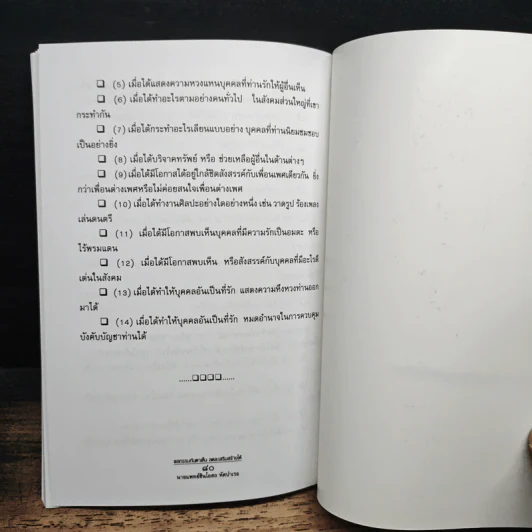 ❑ (5) เมื่อได้แสดงความหวงแหนบุคคลที่ท่านรักให้ผู้อื่นเห็น
❑ (6) เมื่อได้ทำอะไรตามอย่างคนทั่วไป ในสังคมส่วนใหญ่ที่เขา
กระทำกัน
❑ (7) เมื่อได้กระทำอะไรเลียนแบบอย่าง บุคคลที่ท่านนิยมชมชอบ
เป็นอย่างยิ่ง
❑ (8) เมื่อได้บริจาคทรัพย์ หรือ ช่วยเหลือผู้อื่นในด้านต่างๆ
❑ (9) เมื่อได้มีโอกาสได้อยู่ใกล้ชิดสังสรรค์กับเพื่อนเพศเดียวกัน ยิ่ง
กว่าเพื่อนต่างเพศหรือไม่ค่อยสนใจเพื่อนต่างเพศ
❑ (10) เมื่อได้ทำงานศิลปะอย่างใดอย่างหนึ่ง เช่น วาดรูป ร้องเพลง
เล่นดนตรี
❑ (11) เมื่อได้มีโอกาสพบเห็นบุคคลที่มีความรักเป็นอมตะ หรือ
ไร้พรมแดน
❑ (12) เมื่อได้มีโอกาสพบเห็น หรือสังสรรค์กับบุคคลที่มีอะไรดี
เด่นในสังคม
❑ (13) เมื่อได้ทำให้บุคคลอันเป็นที่รัก แสดงความหึงหวงท่านออก
มาได้
❑ (14) เมื่อได้ทำให้บุคคลอันเป็นที่รัก หมดอำนาจในการควบคุม
บังคับบัญชาท่านได้
......❑❑❑❑......
๘๐
นายแพทย์ชิโนรส